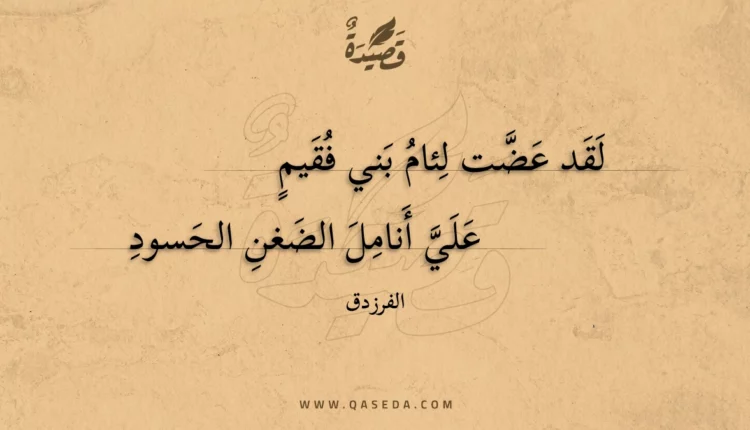 قَصِيْدَةٌ
لَقَد عَضَّت لِئامُ بَني فُقَيمٍ
عَلَيَّ أَنامِلَ الضَغنِ الحَسودِ
الفرزدق
WWW.QASEDA.COM